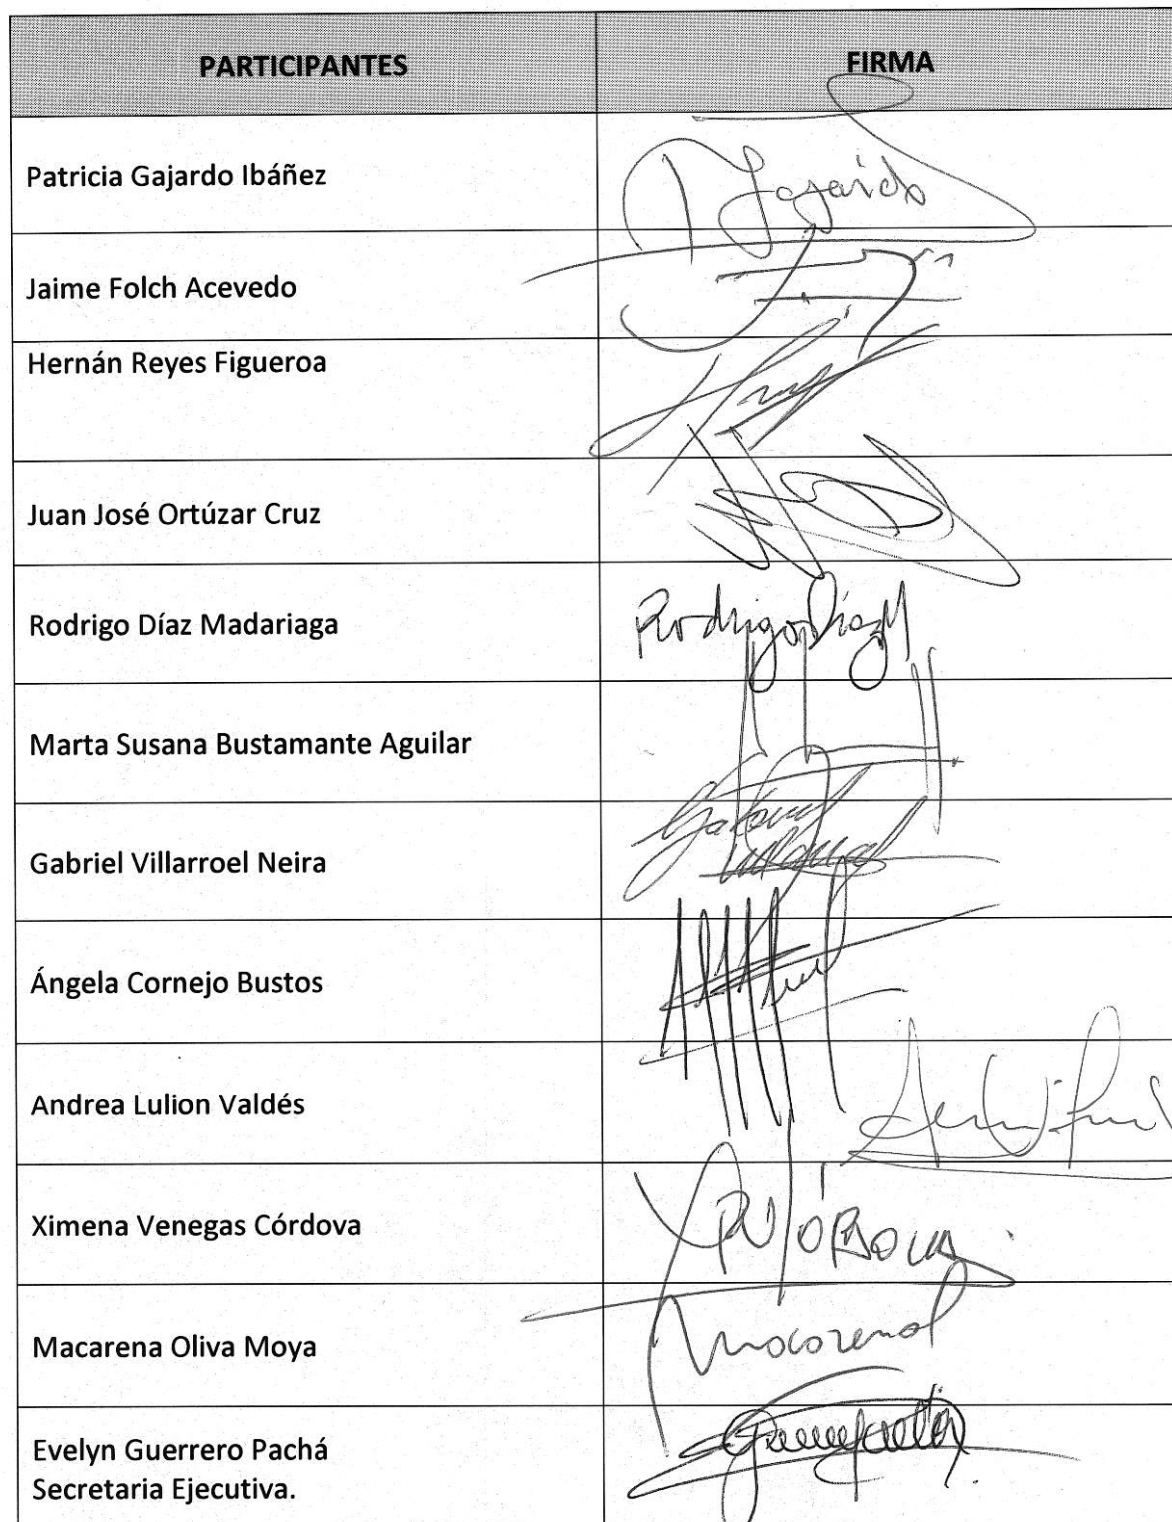 PARTICIPANTES FIRMA
Patricia Gajardo Ibáñez
Jaime Folch Acevedo
Hernán Reyes Figueroa
Juan José Ortúzar Cruz
Rodrigo Díaz Madariaga Rodrigo Díaz M
Marta Susana Bustamante Aguilar
Gabriel Villarroel Neira
Ángela Cornejo Bustos
Andrea Lulion Valdés
Ximena Venegas Córdova
Macarena Oliva Moya
Evelyn Guerrero Pachá
Secretaria Ejecutiva.